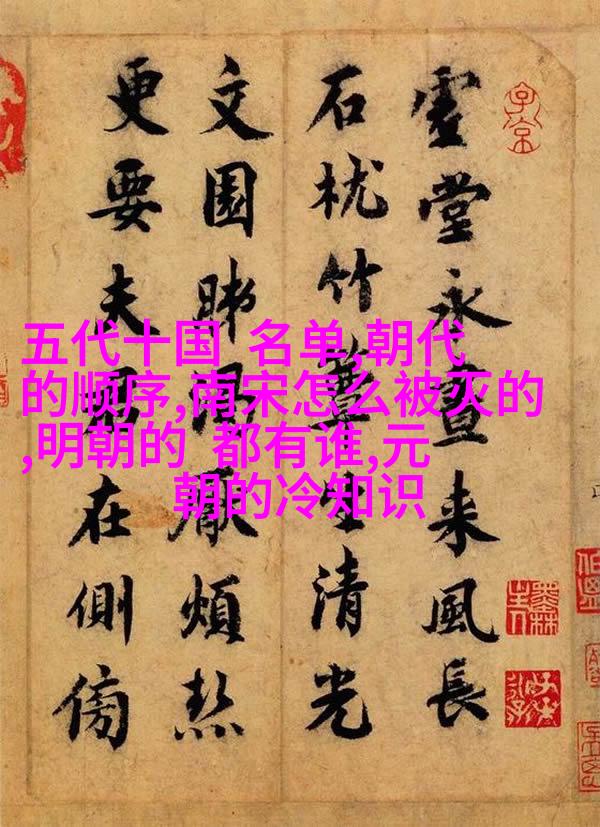 虛堂永晝来風長
石枕竹簟生清光
文園厭煩熱
更要夫君在側傍
五代十国 名单,朝代
的顺序,南宋怎么被灭的
,明朝的 都有谁,元
朝的冷知识